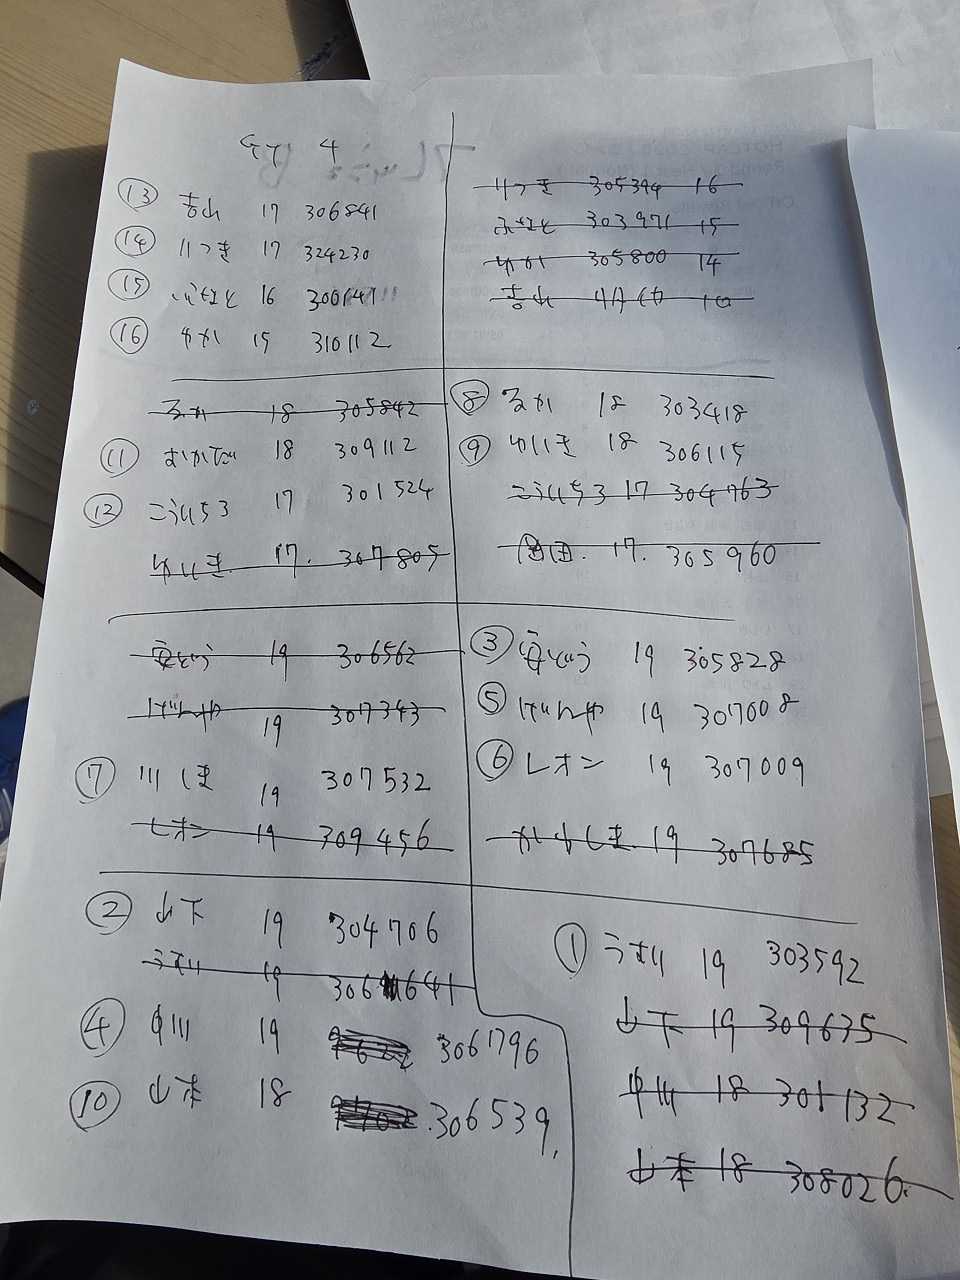 4
⑬ 吉山 17 306841
⑭ りつき 17 324230
⑮ ふなと 16
⑯ ゆか 15 310112
りつき 305394 16
ふなと 303971 15
ゆか 305800 14
吉山
るか 18 305842
⑪ おかだ 18 309112
⑫ こういちろ 17 301524
ゆいき 17. 307805
⑧ るか 18 303418
⑨ ゆいき 18 306115
こういちろ 17 304763
17. 305960
安どう 19 306562
げんや 19 307343
⑦ 川しま 19 307532
レオン 19 309456
③ 安どう 19 305828
⑤ げんや 19 307008
⑥ レオン 19 307009
かわしま 19 307685
② 山下 19 304706
19 306 641
④ 中川 19 3061796
⑩ 山本 18 306539
① 19 303592
山下 19 309635
中川 18 301132
山本 18 308026